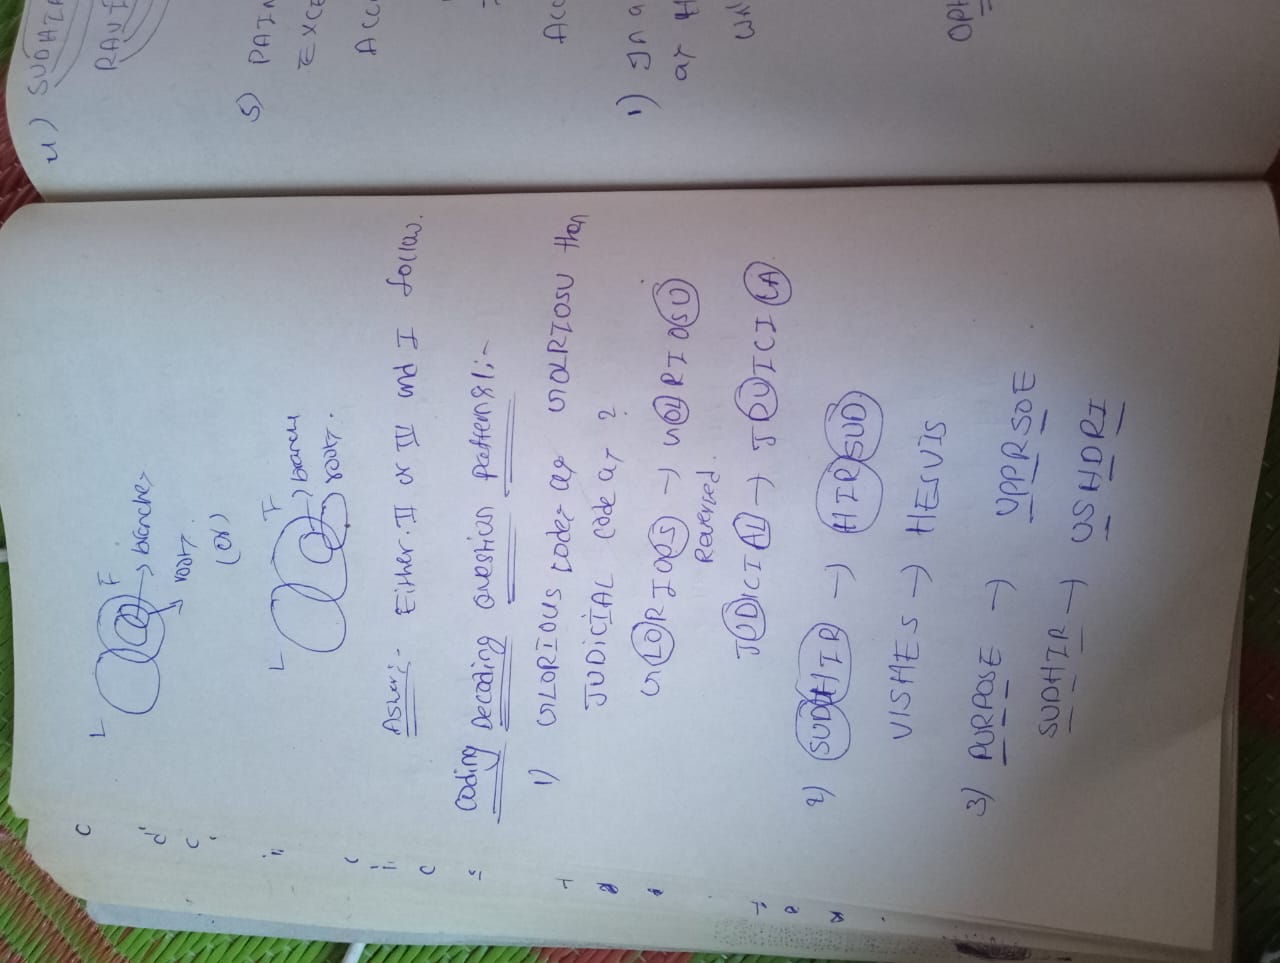 L
F
branches
root.
(or)
L
F
branch
root.
Aswer:- Either II or IV and I follow.
Coding Decoding question patterns1:-
1) GLORIOUS codes as GOLRIOSU then
JUDICIAL code as ?
GLORIOUS → GOLRIOSU
Reversed.
JUDICIAL → JDUICILA
2) SUDHIR → HIRSUD
VISHES → HESVIS
3) PURPOSE → UPPRSOE
SUDHIR → USHDRI
4) SUDHIR
RAVI
5) PAIN
EXCE
ACC
ACC
1) In a
as
OPH